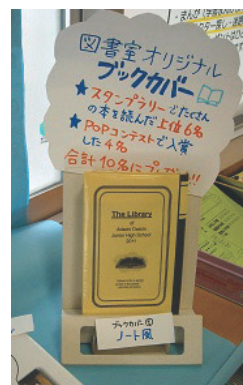 図書室オリジナル
ブックカバー
★スタンプラリーでたくさん
の本を読んだ上位6名
★POPコンテストで入賞
した4名
合計10名にプレゼント!!
The Library
of
Junior High School
2011
ブックカバー①
ノート風